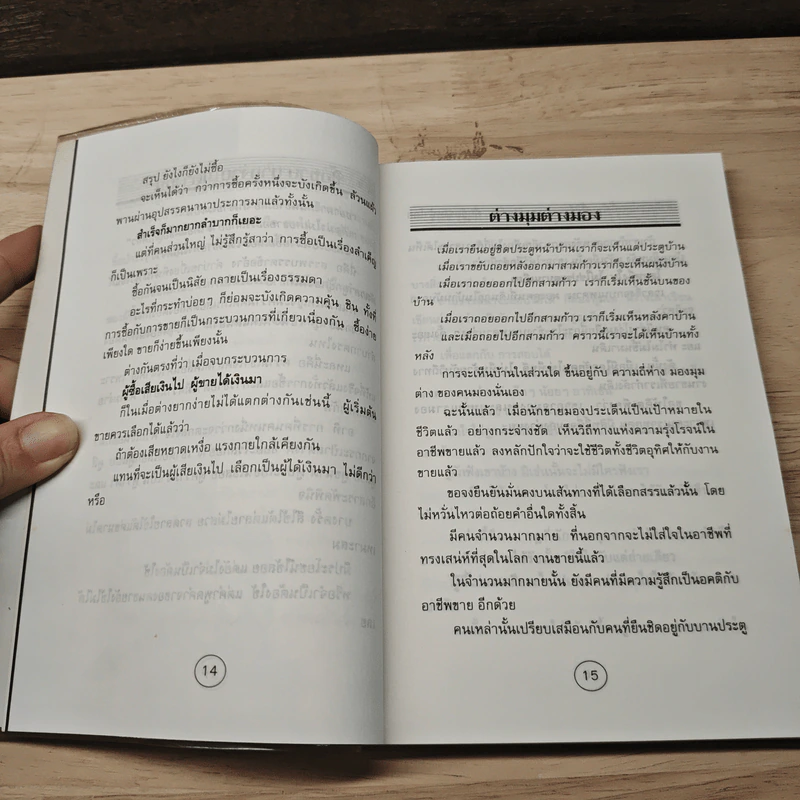 สรุป ยังไงก็ยังไม่ซื้อ
จะเห็นได้ว่า กว่าการซื้อครั้งหนึ่งจะบังเกิดขึ้น ล้วนแล้ว
พานผ่านอุปสรรคนานาประการมาแล้วทั้งนั้น
สำเร็จก็มากยากลำบากก็เยอะ
แต่ที่คนส่วนใหญ่ ไม่รู้สึกรู้สาว่า การซื้อเป็นเรื่องลำเค็ญ
ก็เป็นเพราะ
ซื้อกันจนเป็นนิสัย กลายเป็นเรื่องธรรมดา
อะไรที่กระทำบ่อยๆ ก็ย่อมจะบังเกิดความคุ้น ชิน ทั้งที่
การซื้อกับการขายก็เป็นกระบวนการที่เกี่ยวเนื่องกัน ซื้อง่าย
เพียงใด ขายก็ง่ายขึ้นเพียงนั้น
ต่างกันตรงที่ว่า เมื่อจบกระบวนการ
ผู้ซื้อเสียเงินไป ผู้ขายได้เงินมา
ก็ในเมื่อต่างยากง่ายไม่ได้แตกต่างกันเช่นนี้ ผู้เริ่มต้น
ขายควรเลือกได้แล้วว่า
ถ้าต้องเสียหยาดเหงื่อ แรงกายใกล้เคียงกัน
แทนที่จะเป็นผู้เสียเงินไป เลือกเป็นผู้ได้เงินมา ไม่ดีกว่า
หรือ
14
ต่างมุมต่างมอง
เมื่อเรายืนอยู่ชิดประตูหน้าบ้านเราก็จะเห็นแต่ประตูบ้าน
เมื่อเราขยับถอยหลังออกมาสามก้าวเราก็จะเห็นผนังบ้าน
เมื่อเราถอยออกไปอีกสามก้าว เราก็เริ่มเห็นชั้นบนของ
บ้าน
เมื่อเราถอยออกไปอีกสามก้าว เราก็เริ่มเห็นหลังคาบ้าน
และเมื่อถอยไปอีกสามก้าว คราวนี้เราจะได้เห็นบ้านทั้ง
หลัง
การจะเห็นบ้านในส่วนใด ขึ้นอยู่กับ ความถี่ห่าง มองมุม
ต่าง ของคนมองนั่นเอง
ฉะนั้นแล้ว เมื่อนักขายมองประเด็นเป็นเป้าหมายใน
ชีวิตแล้ว อย่างกระจ่างชัด เห็นวิถีทางแห่งความรุ่งโรจน์ใน
อาชีพขายแล้ว ลงหลักปักใจว่าจะใช้ชีวิตทั้งชีวิตอุทิศให้กับงาน
ขายแล้ว
ขอจงยืนยันมั่นคงบนเส้นทางที่ได้เลือกสรรแล้วนั้น โดย
ไม่หวั่นไหวต่อถ้อยคำอื่นใดทั้งสิ้น
มีคนจำนวนมากมาย ที่นอกจากจะไม่ใส่ใจในอาชีพที่
ทรงเสน่ห์ที่สุดในโลก งานขายนี้แล้ว
ในจำนวนมากมายนั้น ยังมีคนที่มีความรู้สึกเป็นอคติกับ
อาชีพขาย อีกด้วย
คนเหล่านั้นเปรียบเสมือนกับคนที่ยืนชิดอยู่กับบานประตู
15